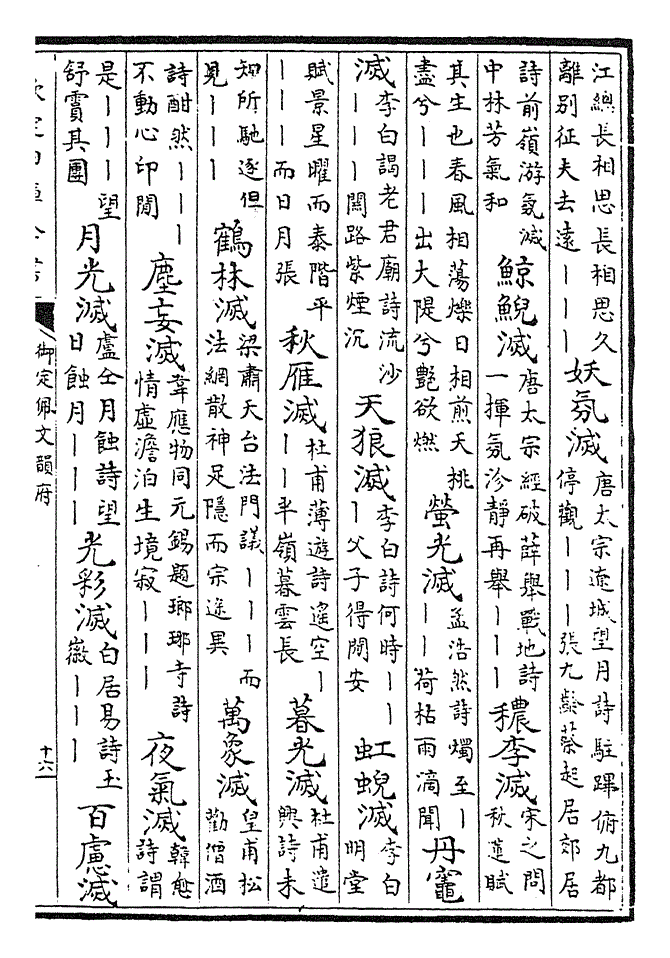 江總長相思長相思久
離別征夫去遠｜｜｜
妖氛滅
唐太宗遼城望月詩駐蹕俯九都
停觀｜｜｜張九齡蔡起居郊居
詩前嶺游氛滅
中林芳氣和
鯨鯢滅
唐太宗經破薛舉戰地詩
一揮氛沴靜再舉｜｜｜
穠李滅
宋之問
秋蓮賦
其生也春風相蕩爍日相煎天桃
盡兮｜｜｜出大隄兮艷欲燃
螢光滅
孟浩然詩燭至｜
｜｜荷枯雨滴聞
丹竈
滅
李白謁老君廟詩流沙
｜｜｜關路紫煙沉
天狼滅
李白詩何時｜｜
｜父子得閒安
虹蜺滅
李白
明堂
賦景星曜而泰階平
｜｜｜｜而日月張
秋雁滅
杜甫薄遊詩遙空｜
｜｜半嶺暮雲長
暮光滅
杜甫遣
興詩未
知所馳逐但
見｜｜｜
鶴林滅
梁肅天台法門議｜｜｜而
法網散神足隱而宗途異
萬象滅
皇甫松
勸僧酒
詩酣然｜｜｜
不動心印閒
塵妄滅
韋應物同元錫題瑯琊寺詩
情虛澹泊生境寂｜｜｜
夜氣滅
韓愈
詩謂
是｜｜｜望
舒霣其團
月光滅
盧仝月蝕詩望
日蝕月｜｜｜
光彩滅
白居易詩玉
徽｜｜｜
百慮滅
御定佩文韻府
十六